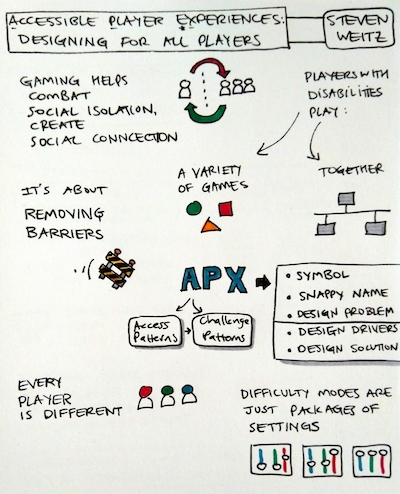 ACCESSIBLE PLAYER EXPERIENCES:
DESIGNING FOR ALL PLAYERS
STEVEN
WEITZ
GAMING HELPS
COMBAT
SOCIAL ISOLATION,
CREATE
SOCIAL CONNCECTION
PLAYERS WITH
DISABILITIES
PLAY:
A VARIETY
OF GAMES
TOGETHER
IT'S ABOUT
REMOVING
BARRIERS
APX
Access
Patterns
Challenge
Patterns
• SYMBOL
• SNAPPY NAME
• DESIGN PROBLEM
• DESIGN DRIVERS
• DESIGN SOLUTION
EVERY
PLAYER
IS DIFFERENT
DIFFICULTY MODES ARE
JUST PACKAGES OF
SETTINGS